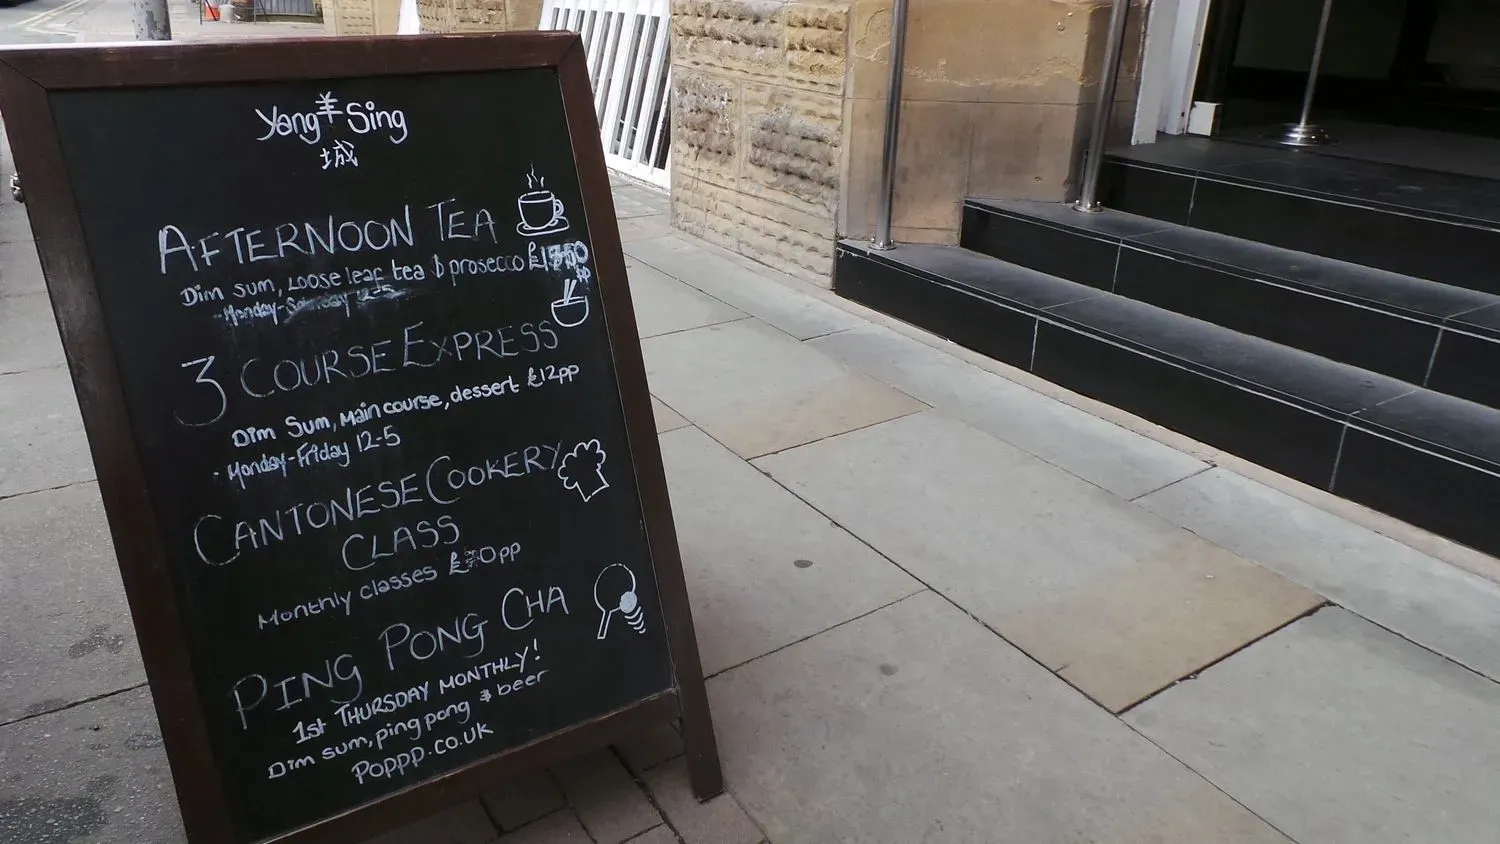 Yang羊Sing
城
AFTERNOON TEA
Dim Sum, Loose leaf tea & prosecco
Monday-
12-5
3 COURSE EXPRESS
Dim Sum, Main course, dessert £12pp
Monday-Friday 12-5
CANTONESE COOKERY
CLASS
Monthly classes
PING PONG CHA
1st THURSDAY MONTHLY!
Dim sum, ping pong & beer
Poppp.co.uk